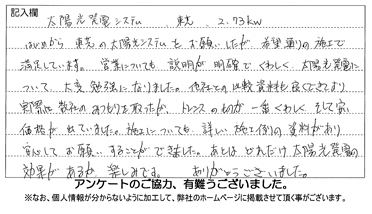 記入欄
太陽光発電システム 東芝 2.73kw
はじめから東芝の太陽光システムをお願いしたが、希望通りの施工で
満足しています。営業についても、説明が明確でくわしく、太陽光発電に
ついて、大変勉強になりました。他社との比較資料も良くできており
実際に数社の見つもりを取ったが、トレンスのものが一番くわしく そして安い
価格が出ていました。施工についても、詳しい施工例の資料があり
安心してお願いすることができました。あとはどれだけ太陽光発電の
効果があるか楽しみです。 ありがとうございました。
アンケートのご協力、有難うございました。
※なお、個人情報が分からないように加工して、弊社のホームページに掲載させて頂く事がございます。